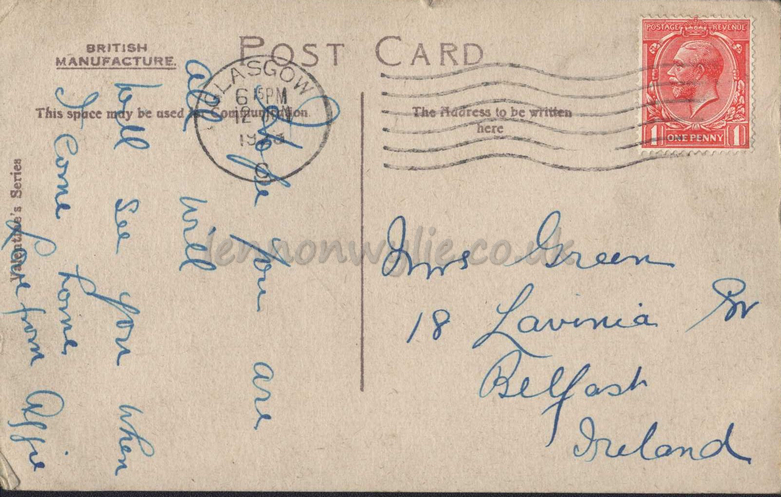 POST CARD
BRITISH
MANUFACTURE.
This space may be used for Communication
The Address to be written
here
Valentine's Series
GLASGOW
6 PM
19
POSTAGE REVENUE
1 ONE PENNY 1
Hope you are
all will
will see you when
I come home
Love from Alffie
Mrs Green
18 Lavinia Sr
Belfast
Ireland
lennonwylie.co.uk